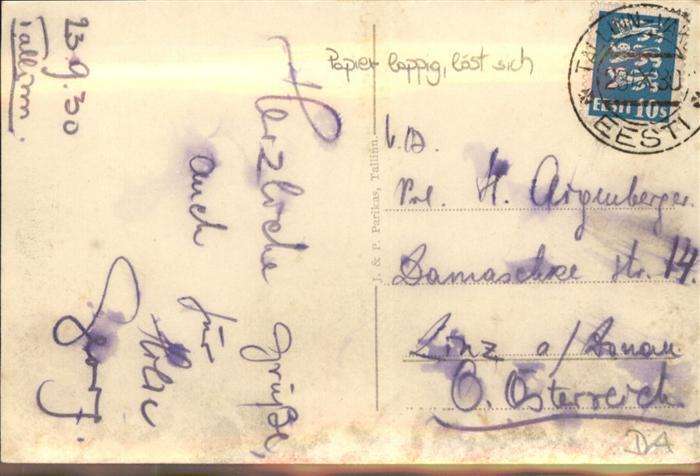 23.9.30
Tallinn.
Herzliche Grüße,
auch für
Georg.
Papier lappig, löst sich
J. & P. Parikas, Tallinn.
EESTI 10s
EESTI
Frl. H. Argenberger
Damaschke str. 14
Linz a/Donau
O. Österreich
DA